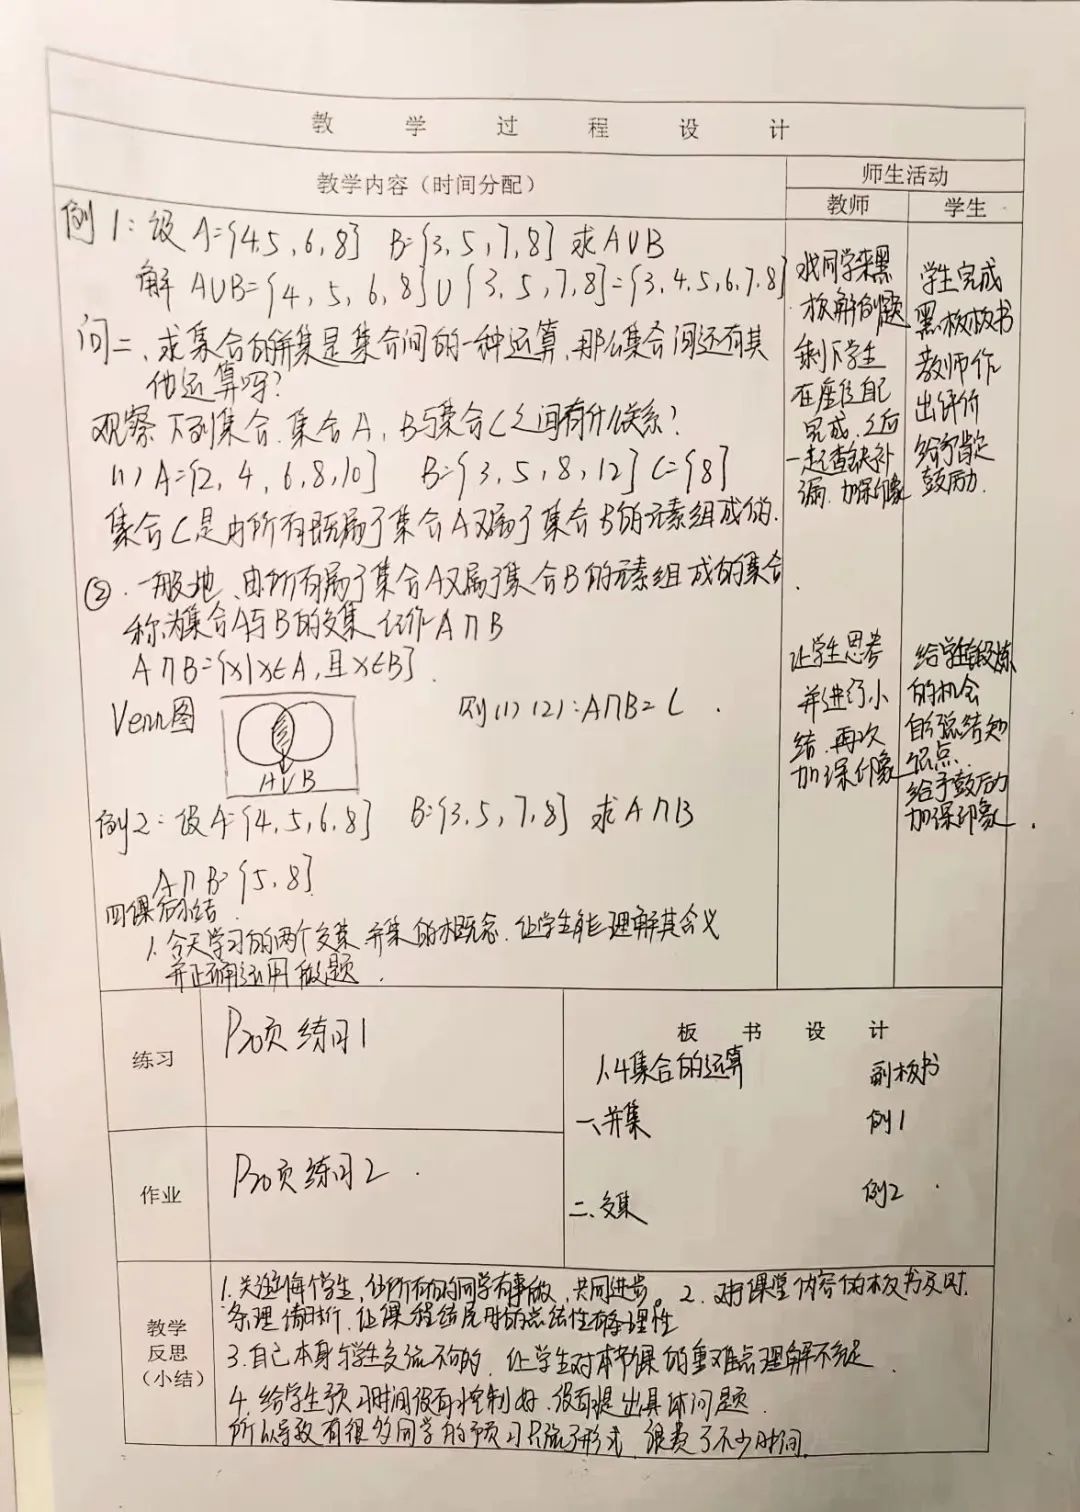 教学过程设计
教学内容（时间分配）
师生活动
教师
学生
例1：设A={4,5,6,8} B={3,5,7,8} 求A∪B
解 A∪B={4,5,6,8}∪{3,5,7,8}={3,4,5,6,7,8}
问二、求集合的并集是集合间的一种运算,那么集合间还有其
他运算吗?
观察下列集合.集合A,B与集合C之间有什么关系?
(1) A={2,4,6,8,10} B={3,5,8,12} C={8}
集合C是由所有既属于集合A又属于集合B的元素组成的.
②.一般地、由所有属于集合A又属于集合B的元素组成的集合
称为集合A与B的交集 记作A∩B
A∩B={x|x∈A,且x∈B}.
Venn图
则(1)(2):A∩B=C.
A∪B
例2:设A={4,5,6,8} B={3,5,7,8} 求A∩B
A∩B={5,8}
四课后小结
1.今天学习的两个交集.并集的概念.让学生能理解其含义
并正确运用做题.
找同学来黑
板解例题
剩下学生
在座位自己
完成.之后
一起查缺补
漏.加深印象
让学生思考
并进行小
结.再次
加深印象
学生完成
黑板板书
教师作
出评价
给予肯定
鼓励.
给学生锻炼
的机会
自己总结知
识点.
给予鼓励
加深印象.
练习
P20页练习1
作业
P20页练习2.
板书设计
1.4集合的运算 副板书
一、并集 例1
二、交集 例2
教学
反思
（小结）
1.关注到每个学生,让所有的同学有事做,共同进步。2.对课堂内容的板书及时.
条理清晰.让课程结尾时的总结性有条理性
3.自己本身与学生交流不够的.让学生对本节课的重难点理解不够足.
4.给学生预习时间没有控制好.没有提出具体问题.
所以导致有很多同学的预习只流于形式.浪费了不少时间.